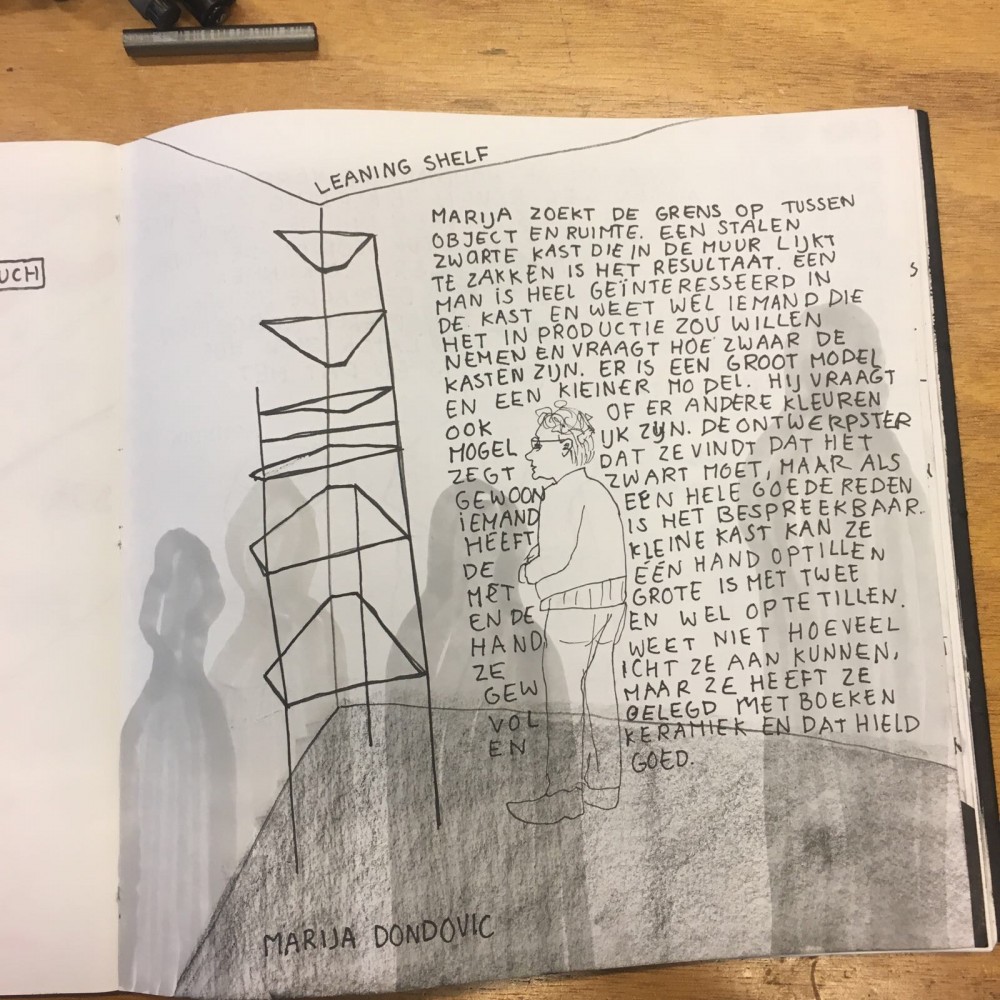 UCH
LEANING SHELF
MARIJA ZOEKT DE GRENS OP TUSSEN
OBJECT EN RUIMTE. EEN STALEN
ZWARTE KAST DIE IN DE MUUR LIJKT
TE ZAKKEN IS HET RESULTAAT. EEN
MAN IS HEEL GEÏNTERESSEERD IN
DE KAST EN WEET WEL IEMAND DIE
HET IN PRODUCTIE ZOU WILLEN
NEMEN EN VRAAGT HOE ZWAAR DE
KASTEN ZIJN. ER IS EEN GROOT MODEL
EN EEN KLEINER MODEL. HIJ VRAAGT
OOK OF ER ANDERE KLEUREN
MOGEL IJK ZIJN. DE ONTWERPSTER
ZEGT DAT ZE VINDT DAT HET
GEWOON ZWART MOET, MAAR ALS
IEMAND EEN HELE GOEDE REDEN
HEEFT IS HET BESPREEKBAAR.
DE KLEINE KAST KAN ZE
MET ÉÉN HAND OPTILLEN
EN DE GROTE IS MET TWEE
HAND EN WEL OP TE TILLEN.
ZE WEET NIET HOEVEEL
GEW ICHT ZE AAN KUNNEN,
MAAR ZE HEEFT ZE
VOL GELEGD MET BOEKEN
EN KERAMIEK EN DAT HIELD
GOED.
MARIJA DONDOVIC